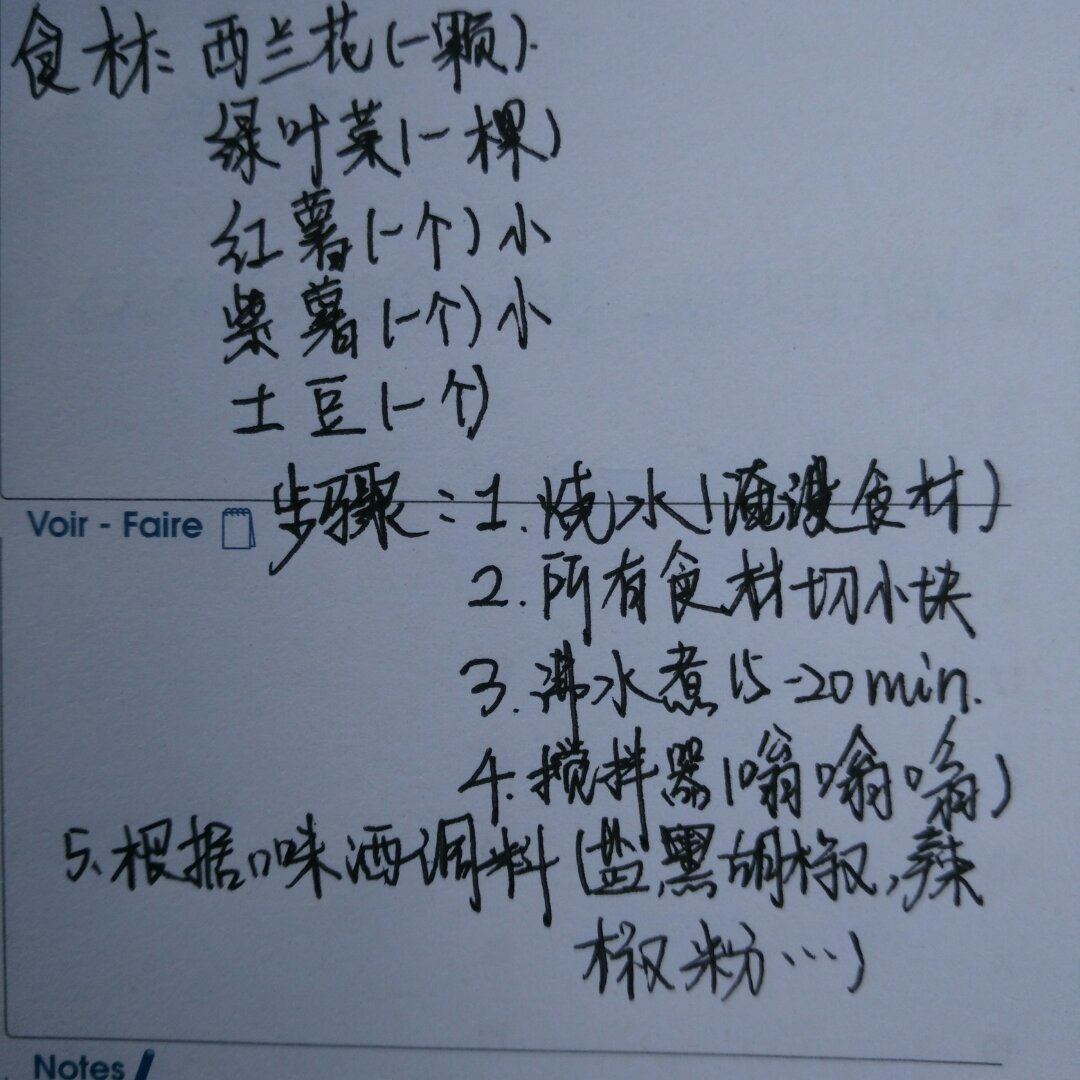 食材: 西兰花(一颗).
绿叶菜(一棵)
红薯(一个)小
紫薯(一个)小
土豆(一个)
步骤: 1. 烧水(淹没食材)
Voir - Faire
2. 所有食材切小块
3. 沸水煮 15-20min.
4. 搅拌器(嗡嗡嗡)
5. 根据口味洒调料(盐黑胡椒,辣
椒粉…)
Notes